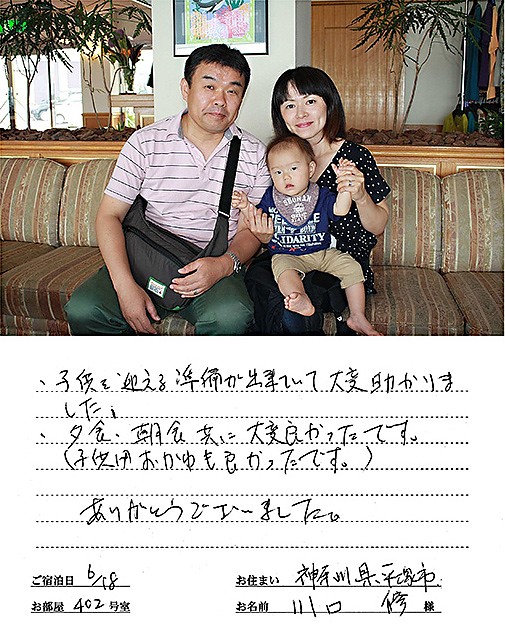 SHONAN
SOLIDARITY
、子供を迎える準備が出来ていて大変助かりま
した。
、夕食、朝食共に大変良かったです。
(子供用おかゆも良かったです。)
ありがとうございました。
ご宿泊日 6/18
お住まい 神奈川県平塚市
お部屋 402 号室
お名前 川口 修 様